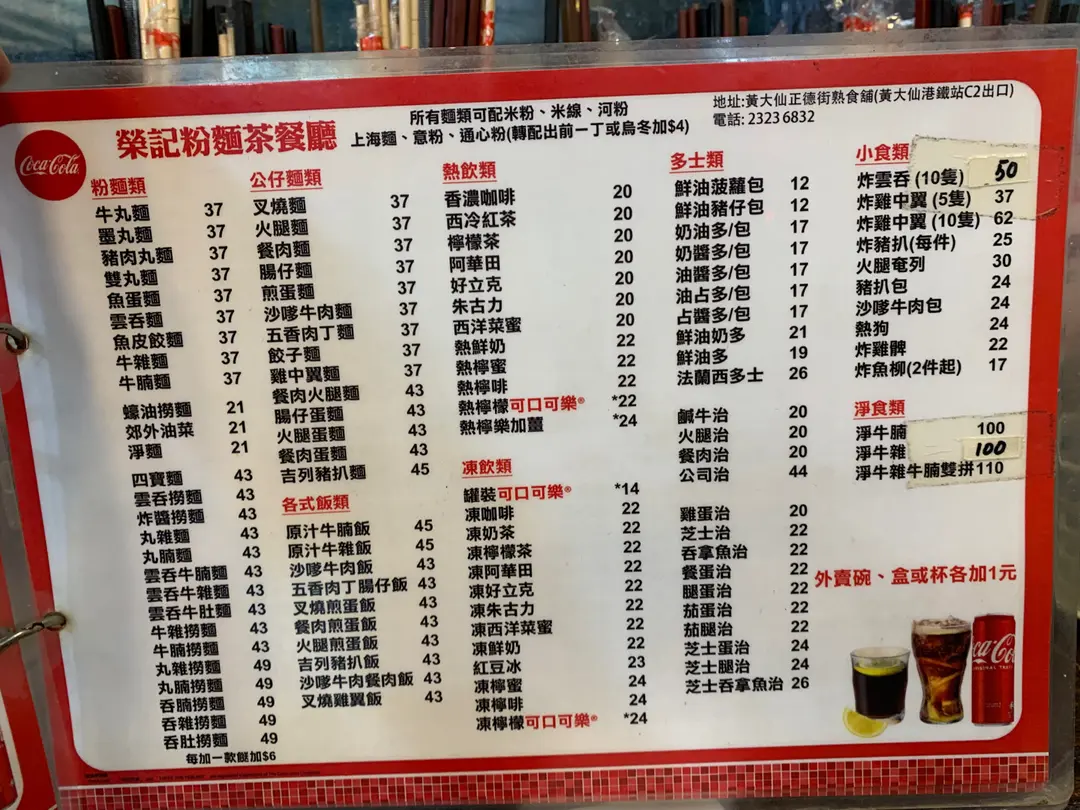 Coca-Cola
榮記粉麵茶餐廳
所有麵類可配米粉、米線、河粉
上海麵、意粉、通心粉(轉配出前一丁或烏冬加$4)
地址:黃大仙正德街熟食舖(黃大仙港鐵站C2出口)
電話: 2323 6832
粉麵類
牛丸麵 37
墨丸麵 37
豬肉丸麵 37
雙丸麵 37
魚蛋麵 37
雲吞麵 37
魚皮餃麵 37
牛雜麵 37
牛腩麵 37
蠔油撈麵 21
郊外油菜 21
淨麵 21
四寶麵 43
雲吞撈麵 43
炸醬撈麵 43
丸雜麵 43
丸腩麵 43
雲吞牛腩麵 43
雲吞牛雜麵 43
雲吞牛肚麵 43
牛雜撈麵 43
牛腩撈麵 43
丸雜撈麵 49
丸腩撈麵 49
吞腩撈麵 49
吞雜撈麵 49
吞肚撈麵 49
每加一款餸加$6
公仔麵類
叉燒麵 37
火腿麵 37
餐肉麵 37
腸仔麵 37
煎蛋麵 37
沙嗲牛肉麵 37
五香肉丁麵 37
餃子麵 37
雞中翼麵 37
餐肉火腿麵 43
腸仔蛋麵 43
火腿蛋麵 43
餐肉蛋麵 43
吉列豬扒麵 45
各式飯類
原汁牛腩飯 45
原汁牛雜飯 45
沙嗲牛肉飯 43
五香肉丁腸仔飯 43
叉燒煎蛋飯 43
餐肉煎蛋飯 43
火腿煎蛋飯 43
吉列豬扒飯 43
沙嗲牛肉餐肉飯 43
叉燒雞翼飯 43
熱飲類
香濃咖啡 20
西冷紅茶 20
檸檬茶 20
阿華田 20
好立克 20
朱古力 20
西洋菜蜜 20
熱鮮奶 22
熱檸蜜 22
熱檸啡 22
熱檸檬可口可樂® *22
熱檸樂加薑 *24
凍飲類
罐裝可口可樂® *14
凍咖啡 22
凍奶茶 22
凍檸檬茶 22
凍阿華田 22
凍好立克 22
凍朱古力 22
凍西洋菜蜜 22
凍鮮奶 22
紅豆冰 23
凍檸蜜 24
凍檸啡 24
凍檸檬可口可樂® *24
多士類
鮮油菠蘿包 12
鮮油豬仔包 12
奶油多/包 17
奶醬多/包 17
油醬多/包 17
油占多/包 17
占醬多/包 17
鮮油奶多 21
鮮油多 19
法蘭西多士 26
鹹牛治 20
火腿治 20
餐肉治 20
公司治 44
雞蛋治 20
芝士治 22
吞拿魚治 22
餐蛋治 22
腿蛋治 22
茄蛋治 22
茄腿治 22
芝士蛋治 24
芝士腿治 24
芝士吞拿魚治 26
小食類
炸雲吞 (10隻) 50
炸雞中翼 (5隻) 37
炸雞中翼 (10隻) 62
炸豬扒(每件) 25
火腿奄列 30
豬扒包 24
沙嗲牛肉包 24
熱狗 24
炸雞髀 22
炸魚柳(2件起) 17
淨食類
淨牛腩 100
淨牛雜 100
淨牛雜牛腩雙拼110
外賣碗、盒或杯各加1元